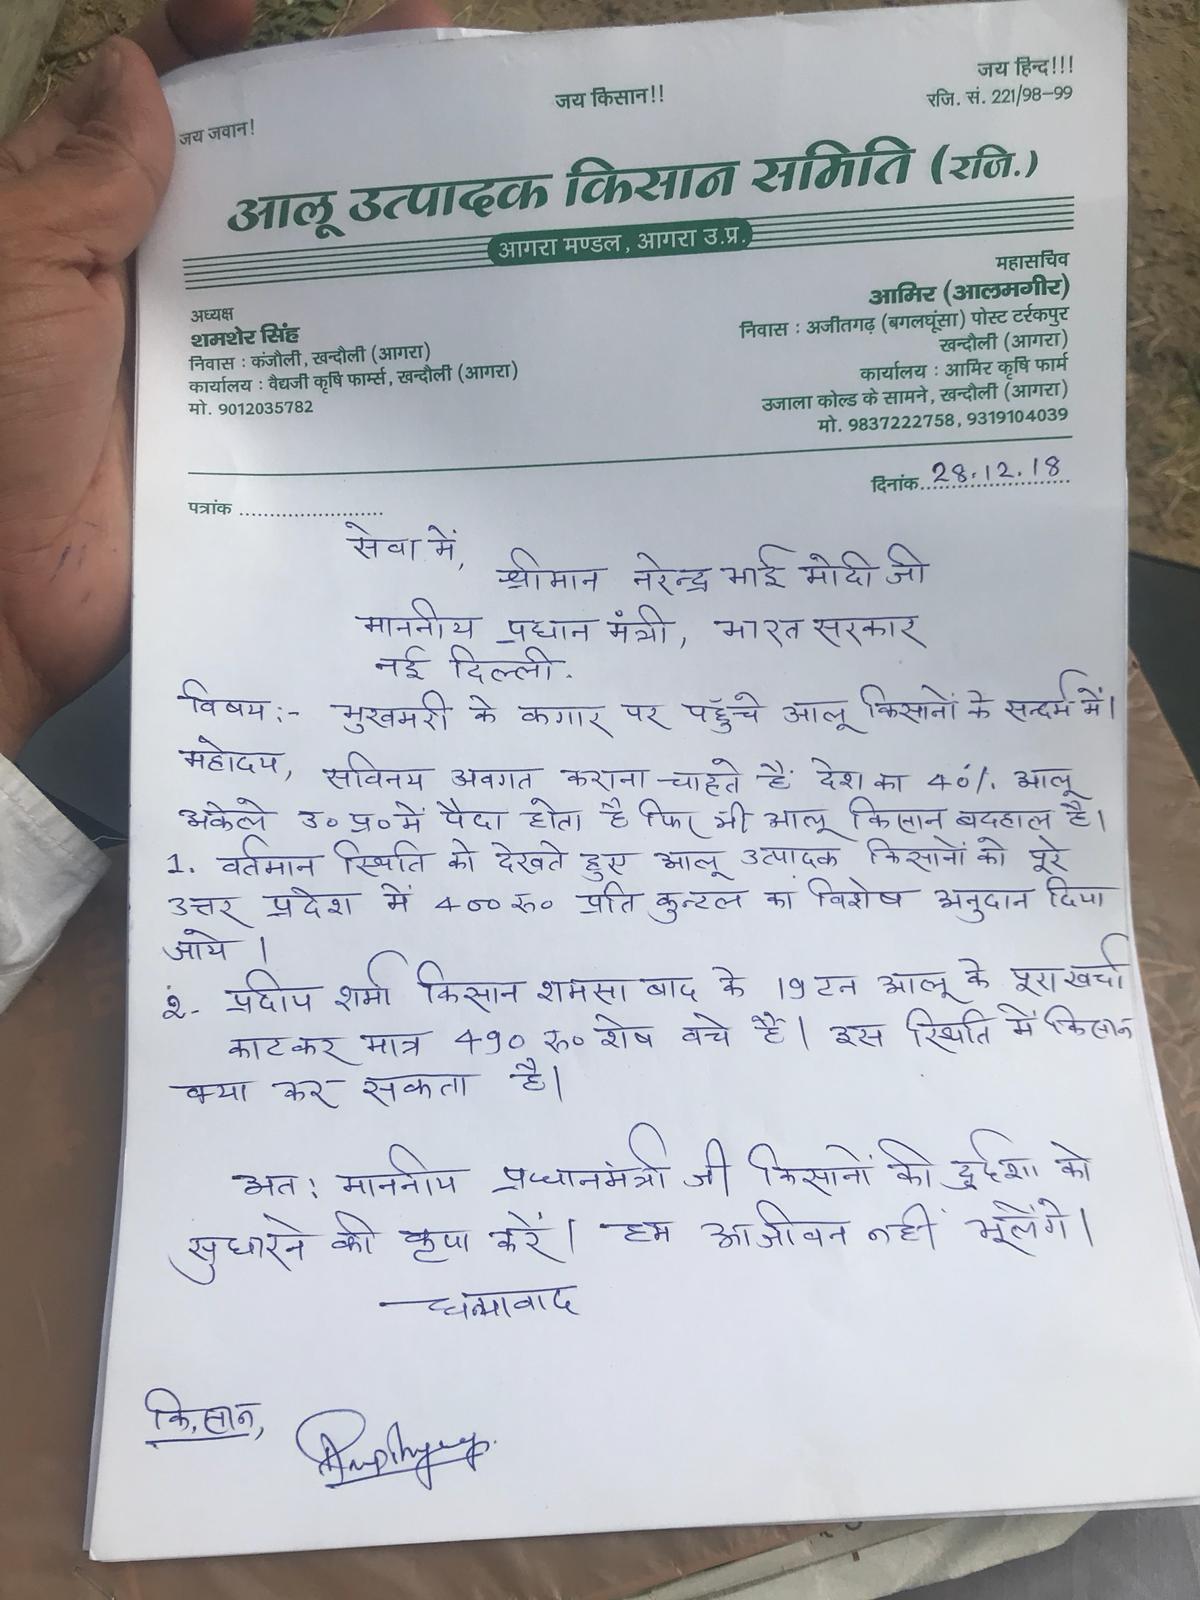 जय जवान!
जय किसान!!
जय हिन्द!!!
रजि. सं. 221/98-99
आलू उत्पादक किसान समिति (रजि.)
आगरा मण्डल, आगरा उ.प्र.
अध्यक्ष
शमशेर सिंह
निवास : कंजौली, खन्दौली (आगरा)
कार्यालय : वैद्यजी कृषि फार्म्स, खन्दौली (आगरा)
मो. 9012035782
महासचिव
आमिर (आलमगीर)
निवास : अजीतगढ़ (बगलघूंसा) पोस्ट टर्रकपुर
खन्दौली (आगरा)
कार्यालय : आमिर कृषि फार्म
उजाला कोल्ड के सामने, खन्दौली (आगरा)
मो. 9837222758, 9319104039
पत्रांक ........................
दिनांक 28.12.18
सेवा में,
श्रीमान नरेन्द्र भाई मोदी जी
माननीय प्रधान मंत्री, भारत सरकार
नई दिल्ली.
विषय:- भुखमरी के कगार पर पहुँचे आलू किसानों के सन्दर्भ में।
महोदय, सविनय अवगत कराना चाहते हैं देश का 40% आलू
अकेले उ० प्र० में पैदा होता है फिर भी आलू किसान बदहाल है।
1. वर्तमान स्थिति को देखते हुए आलू उत्पादक किसानों को पूरे
उत्तर प्रदेश में 400 रु० प्रति कुन्टल का विशेष अनुदान दिया
जाये ।
2- प्रदीप शर्मा किसान शमसाबाद के 19 टन आलू के पूरा खर्चा
काटकर मात्र 490 रु० शेष बचे हैं। इस स्थिति में किसान
क्या कर सकता है।
अत: माननीय प्रधानमंत्री जी किसानों की दुर्दशा को
सुधारने की कृपा करें। हम आजीवन नहीं भूलेंगे।
धन्यवाद
किसान,